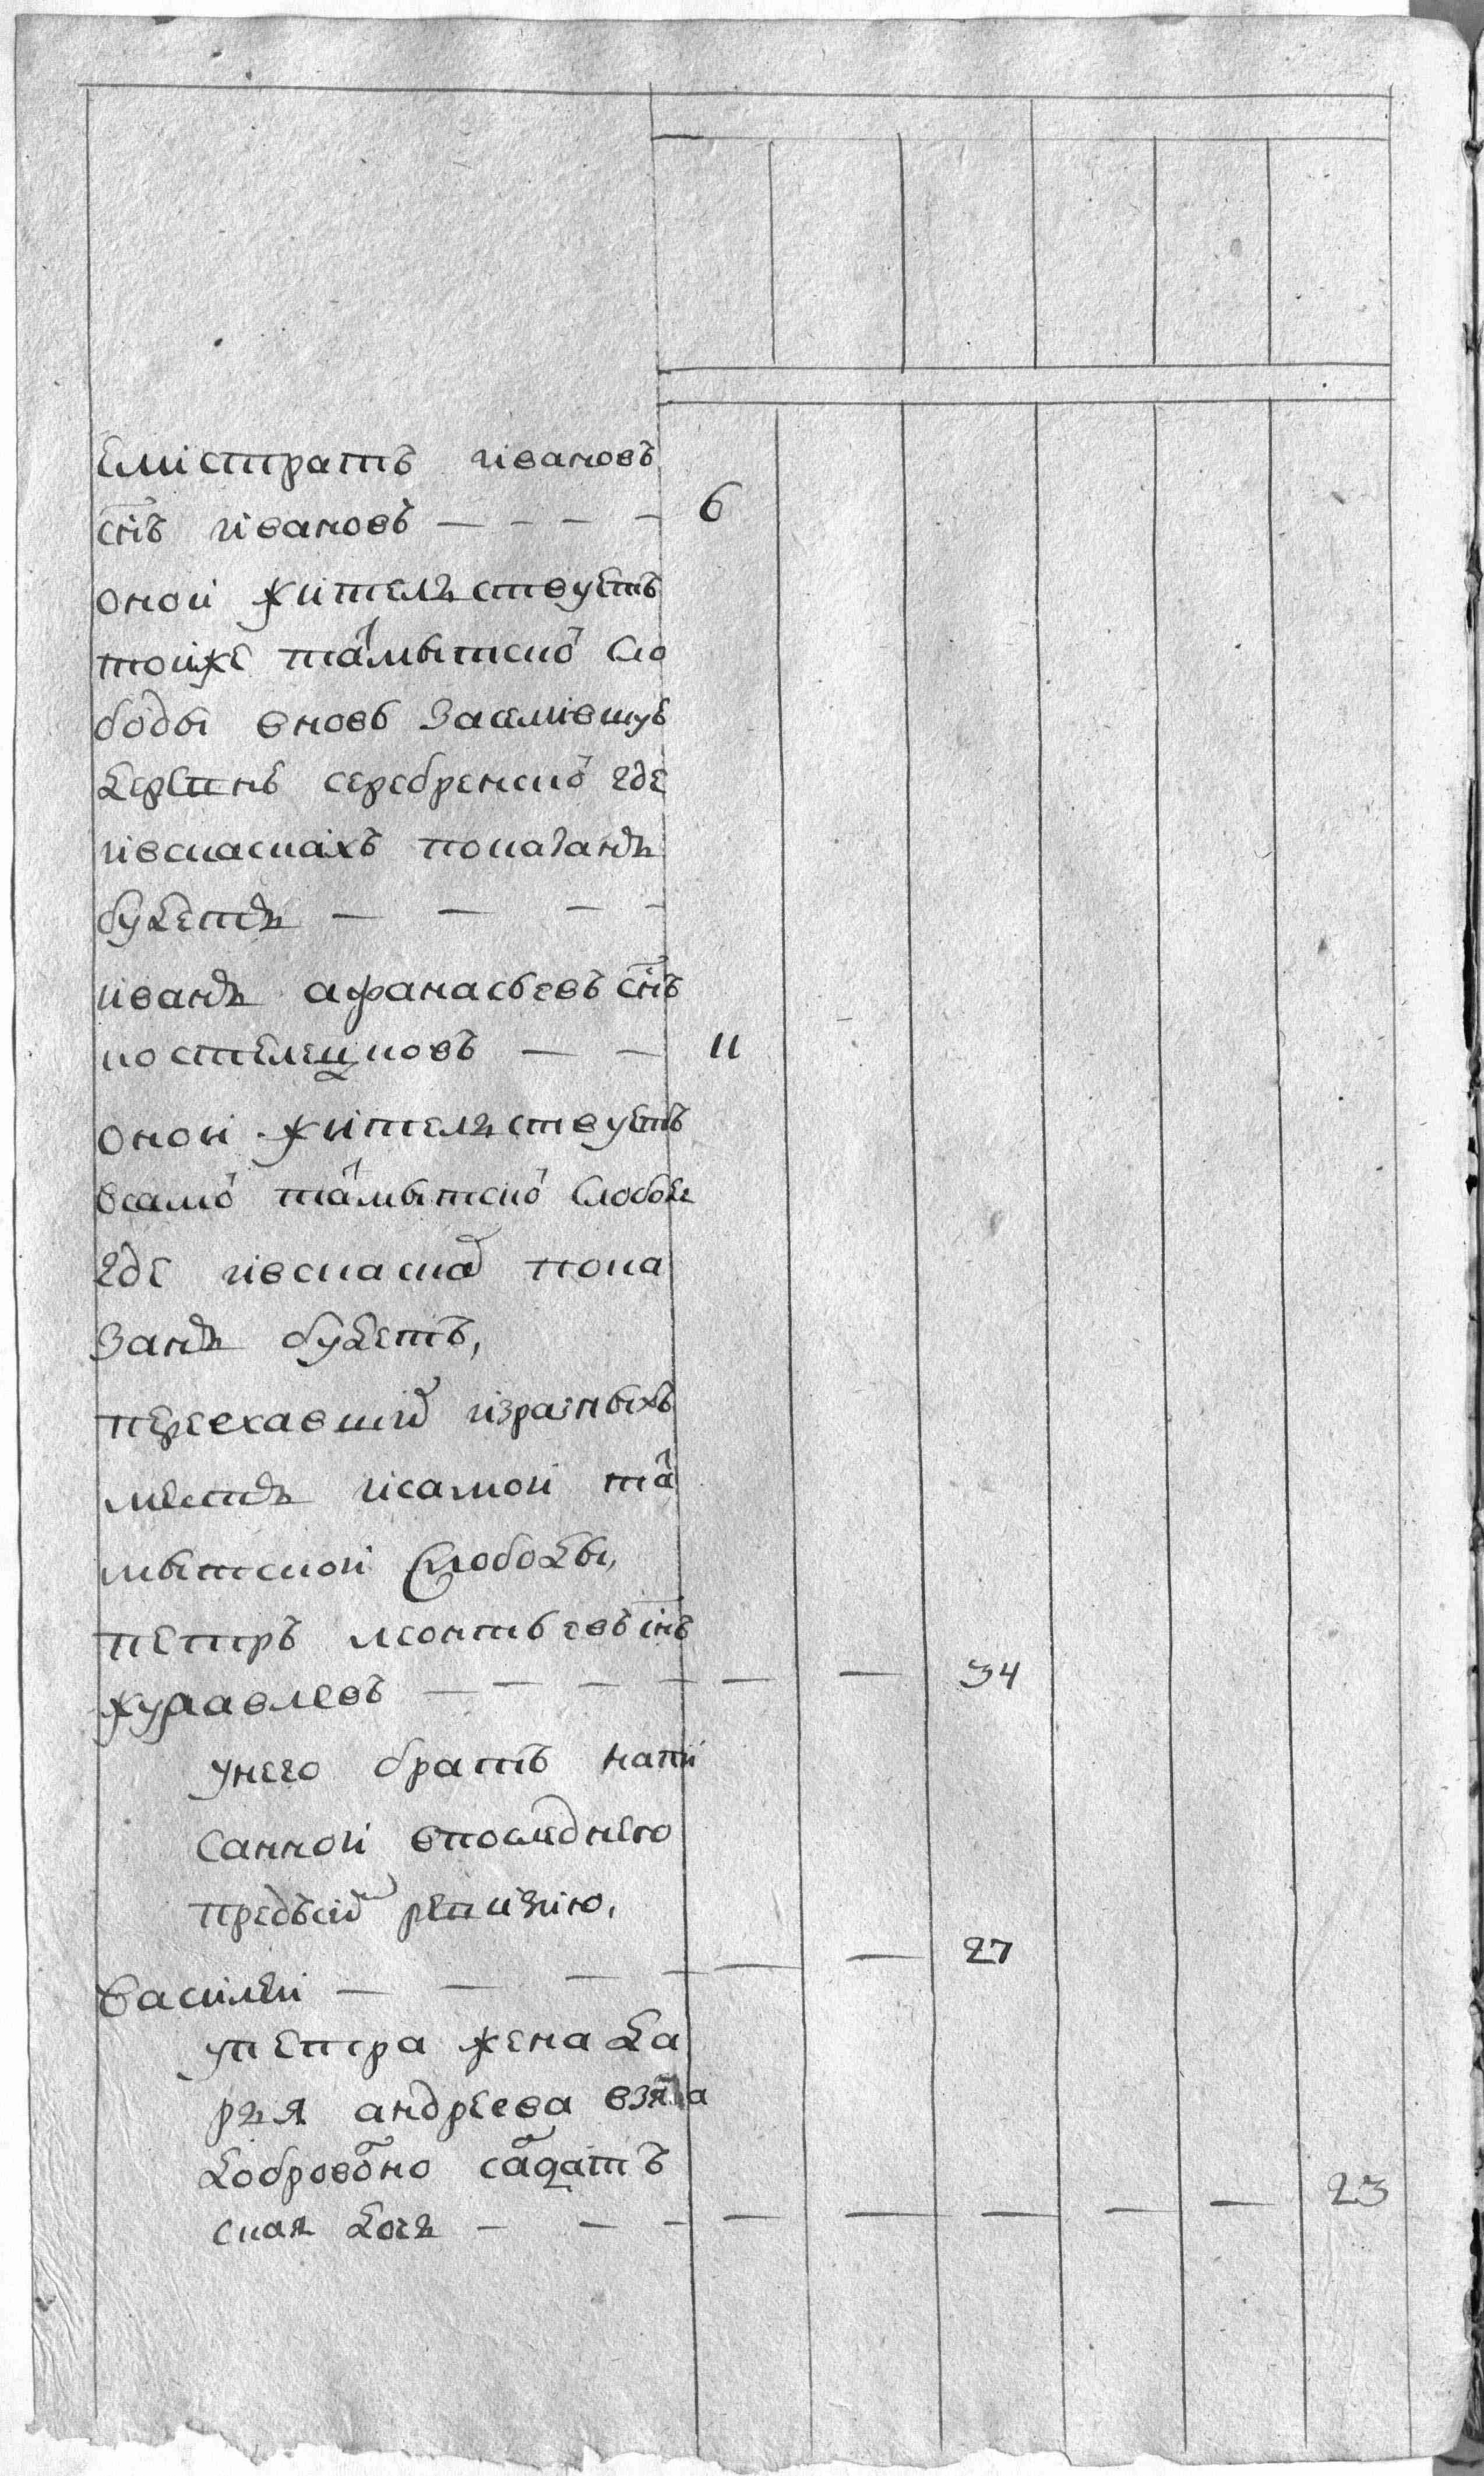 Елистратъ ивановъ
снъ ивановъ — — — — 6
оной жительствуетъ
тойже талмытской сло
боды вновь заселившуе
деревне серебренской где
ивсказкахъ показанъ
будетъ — — — —
иванъ афанасьевъ снъ
костылецковъ — — 11
оной жительствуетъ
всамой талмытской слободе
где ивсказкахъ пока
занъ будетъ,
переехавших изразныхъ
местъ исамой тал
мытской слободы,
петръ леонтьевъ снъ
журавлевъ — — — — — — 34
унего братъ напи
санной впоследнею
предъсим ревизию,
Василеи — — — — — — 27
упетра жена да
рья андреева взята
добровольно салдатъ
ская дочь — — — — — — — — 23